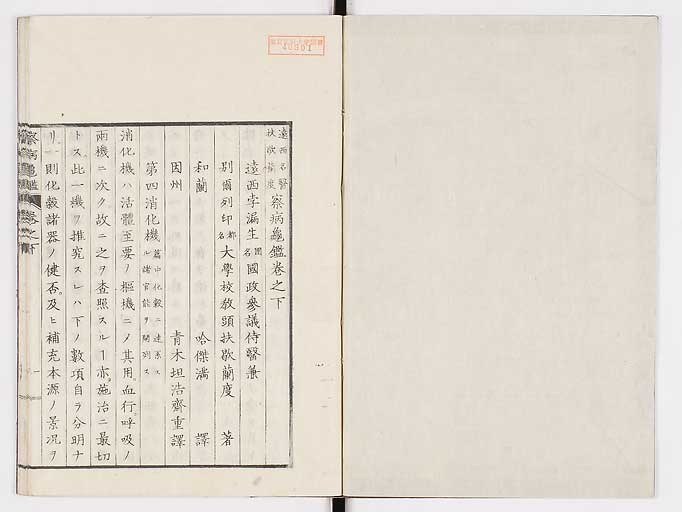 遠西名醫
扶歇蘭度
察病龜鑑卷之下
遠西孛漏生國名國政參議侍醫兼
別爾列印都名大學校教頭扶歇蘭度 著
和蘭 哈傑滿 譯
因州 青木坦浩齋重譯
第四消化機篇中化穀ニ連系スル諸官能ヲ開列ス
消化機ハ活體至要ノ樞機ニノ其用。血行。呼吸ノ
兩機ニ次ク。故ニ之ヲ査照スルー亦。施治ニ最切
トス此一機ヲ推究スレハ下ノ數項自ラ分明ナ
リ。一則化穀諸器ノ健否。及ヒ補充本源ノ景況ヲ
察病龜鑑 卷之下
10807